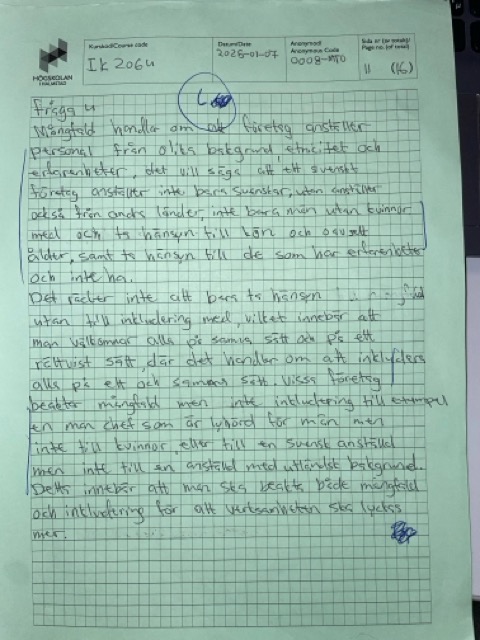 HÖGSKOLAN
I HALMSTAD
Kurskod/Course code
IK2064
Datum/Date
2026-01-07
Anonymkod
Anonymous Code
0008-MTO
Sida nr (av totalt)
Page no. (of total)
11 (16)
fråga 4
Mångfald handla om att företag anställer
personal från olika bakgrund, etnicitet och
erfarenheter, det vill säga att ett svenskt
företag anställer inte bara svenskar, utan anställer
också från andra länder, inte bara män utan kvinnor
med och ta hänsyn till kön och oavsett
ålder, samt ta hänsyn till de som har erfarenheter
och inte ha.
Det räcker inte att bara ta hänsyn
utan till inkludering med, vilket innebär att
man välkomnar alla på samma sätt och på ett
rättvist sätt, där det handlar om att inkludera
alla på ett och samma sätt. Vissa företag
beaktar mångfald men inte inkludering till exempel
en man chef som är lyhörd för män men
inte till kvinnor, eller till en svensk anställd
men inte till en anställd med utländsk bakgrund.
Detta innebär att man ska beakta både mångfald
och inkludering för att verksamheten ska lyckas
mer.